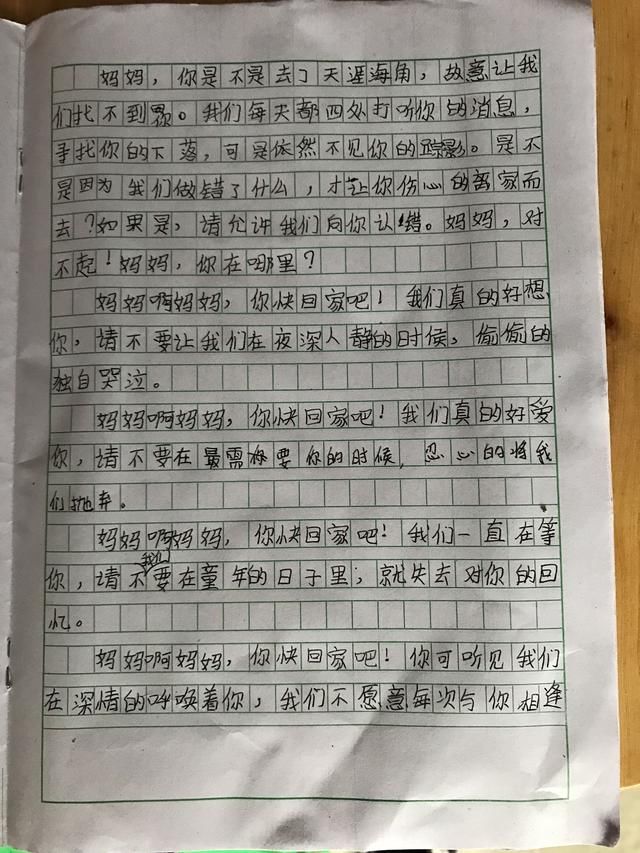 妈妈，你是不是去了天涯海角，故意让我
们找不到你。我们每天都四处打听你的消息，
寻找你的下落，可是依然不见你的踪影。是不
是因为我们做错了什么，才让你伤心的离家而
去？如果是，请允许我们向你认错。妈妈，对
不起！妈妈，你在哪里？
妈妈啊妈妈，你快回家吧！我们真的好想
你，请不要让我们在夜深人静的时候，偷偷的
独自哭泣。
妈妈啊妈妈，你快回家吧！我们真的好爱
你，请不要在最需要你的时候，忍心的将我
们抛弃。
妈妈啊妈妈，你快回家吧！我们一直在等
你，请不要我们在童年的日子里；就失去对你的回
忆。
妈妈啊妈妈，你快回家吧！你可听见我们
在深情的呼唤着你，我们不愿意每次与你相逢